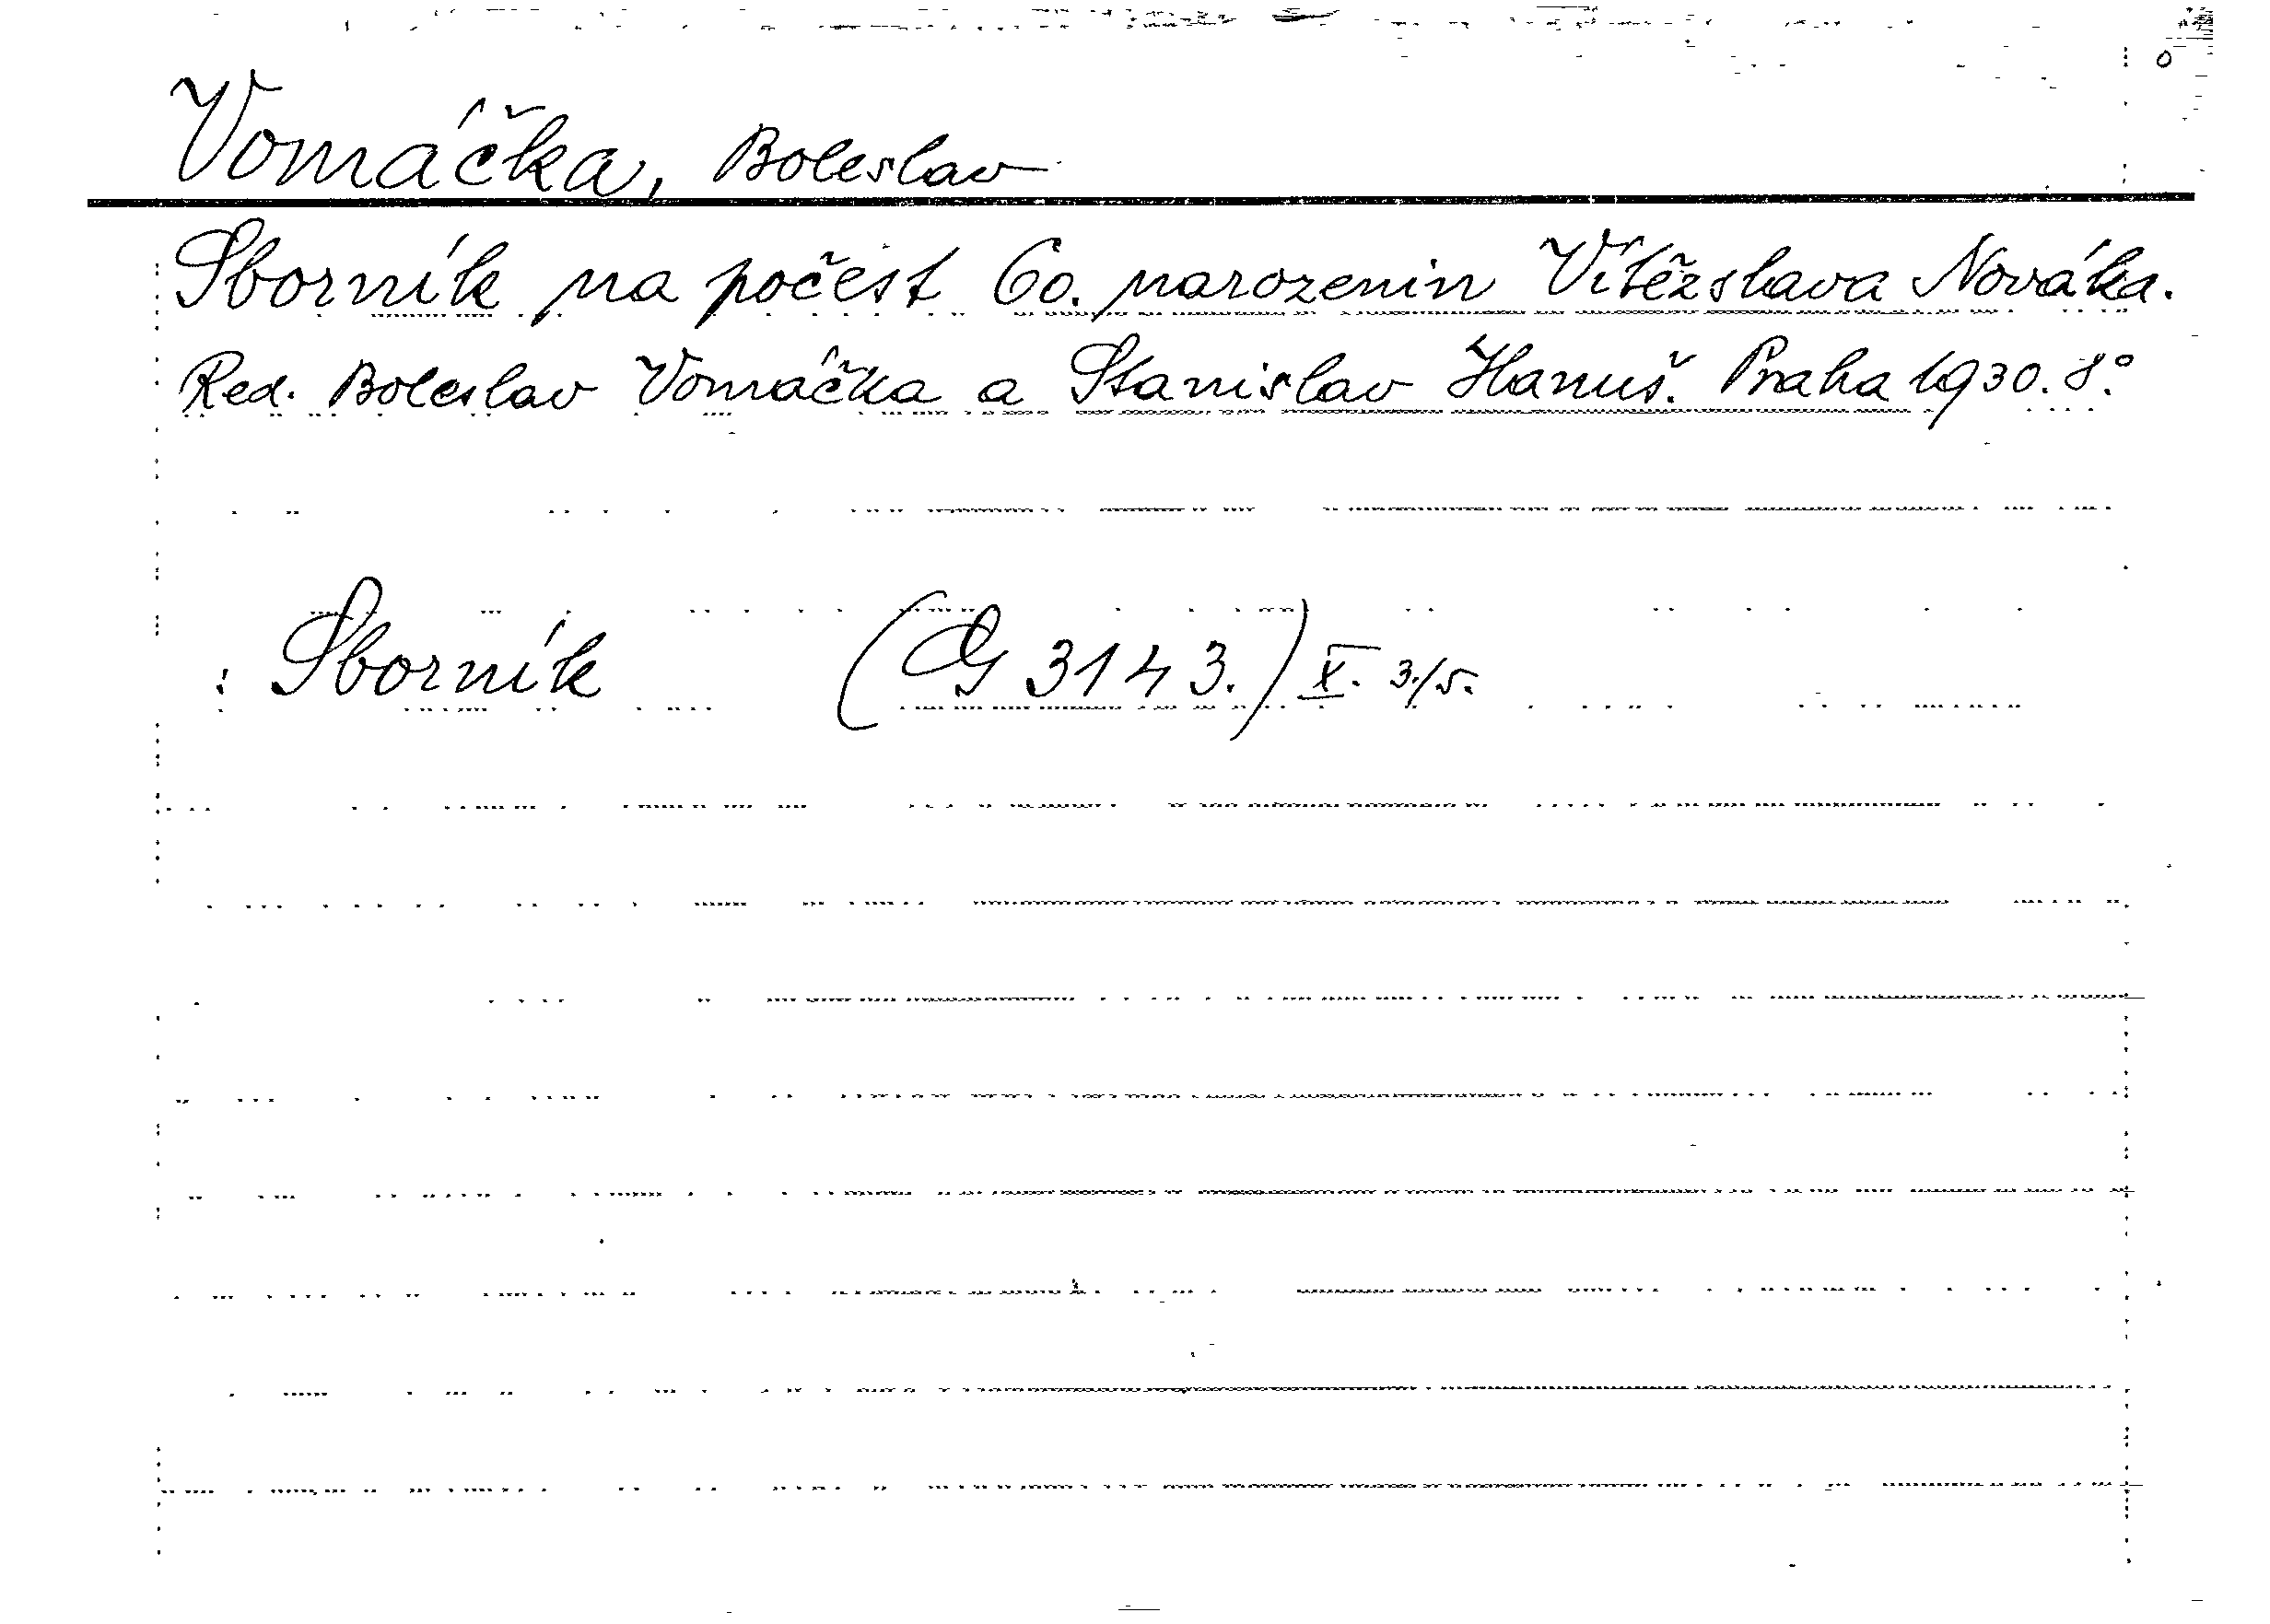 Vomáčka, Boleslav
Sborník na počest 60. narozenin Vítězslava Nováka.
Red. Boleslav Vomáčka a Stanislav Hanuš. Praha 1930. 8°.
: Sborník (G 3143.) X. 3./5.